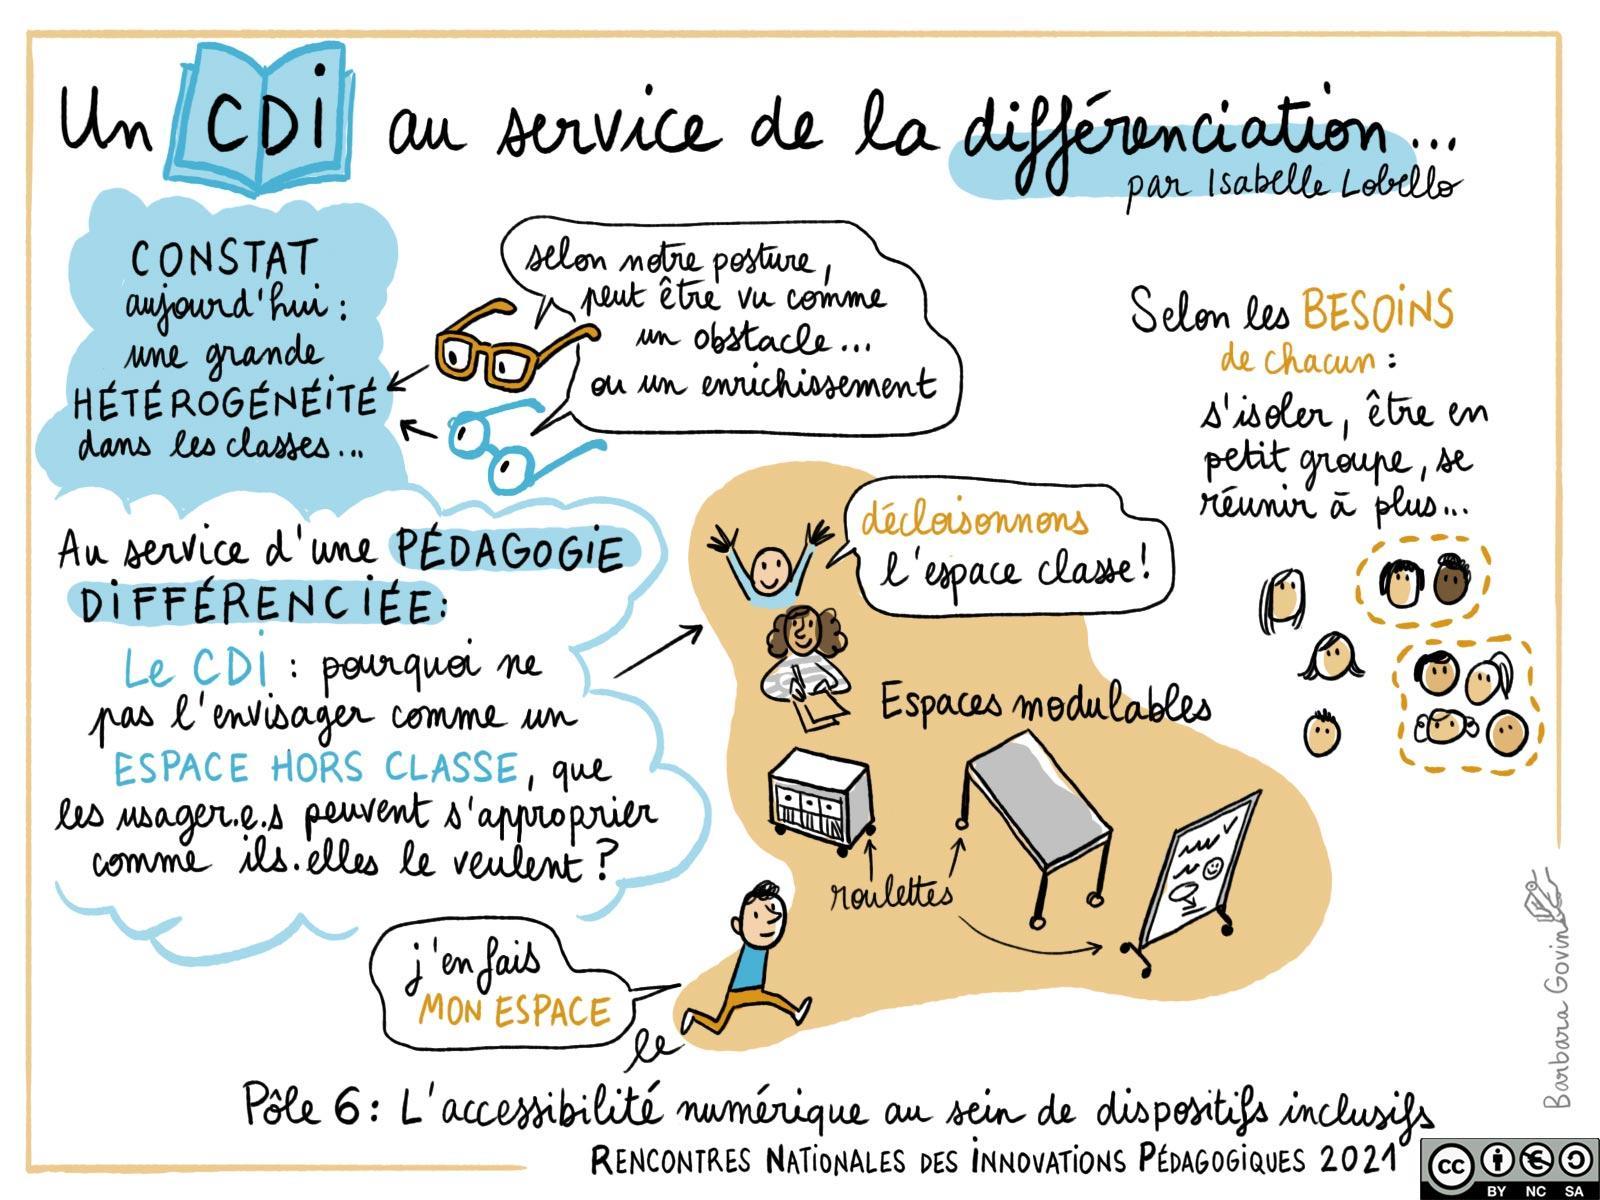 Un CDI au service de la différenciation...
par Isabelle Lobello
CONSTAT
aujourd'hui :
une grande
HÉTÉROGÉNÉITÉ
dans les classes...
selon notre posture,
peut être vu comme
un obstacle...
ou un enrichissement
Selon les BESOINS
de chacun :
s'isoler, être en
petit groupe, se
réunir à plus...
Au service d'une PÉDAGOGIE
DIFFÉRENCIÉE:
Le CDI : pourquoi ne
pas l'envisager comme un
ESPACE HORS CLASSE, que
les usager.e.s peuvent s'approprier
comme ils.elles le veulent ?
décloisonnons
l'espace classe!
Espaces modulables
roulettes
j'en fais
MON ESPACE
le
Pôle 6 : L'accessibilité numérique au sein de dispositifs inclusifs
RENCONTRES NATIONALES DES INNOVATIONS PÉDAGOGIQUES 2021
Barbara Govin
cc
BY NC SA